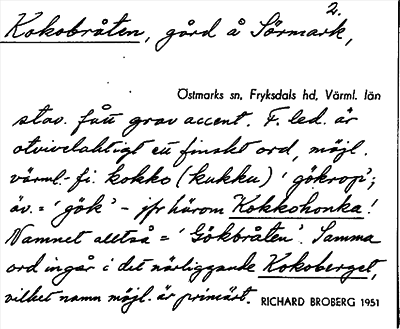 2.
Kokobråten, gård å Sörmark,
Östmarks sn, Fryksdals hd, Värml. län
stav. fått grav accent. F. led. är
otvivelaktigt ett finskt ord, möjl.
värml.-fi. kokko (kukku) 'gökrop';
äv. = 'gök' - jfr härom Kokkohonka!
Namnet alltså = 'Gökbråten'. Samma
ord ingår i det närliggande Kokoberget,
vilket namn möjl. är primärt. RICHARD BROBERG 1951